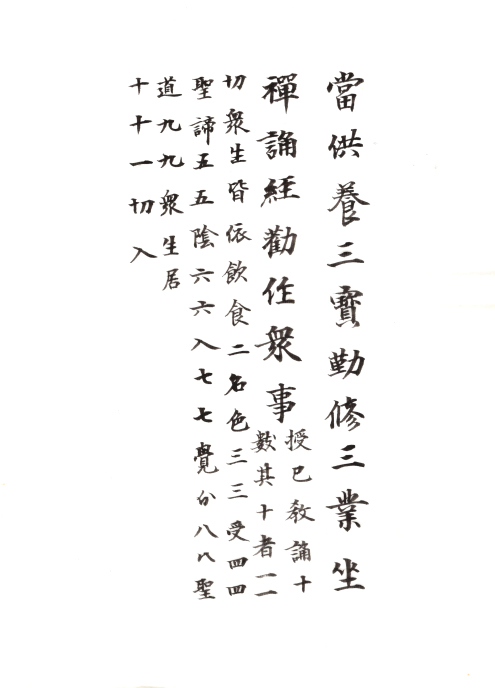 當供養三寶勤修三業坐
禪誦經勸作衆事
授已教誦十
數其十者一一
切衆生皆依飲食二名色三三受四四
聖諦五五陰六六入七七覺分八八聖
道九九衆生居
十十一切入